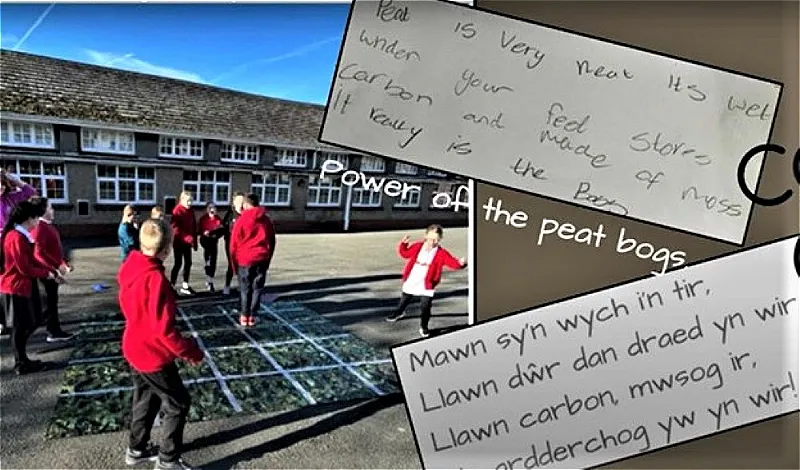 Peat is very neat Its wet
under your feet stores
Carbon and made of moss
It really is the Boss
Power of the peat bogs
Mawn sy'n wych i'n tir,
Llawn dŵr dan draed yn wir
Llawn carbon, mwsog ir,
yw yn wir!